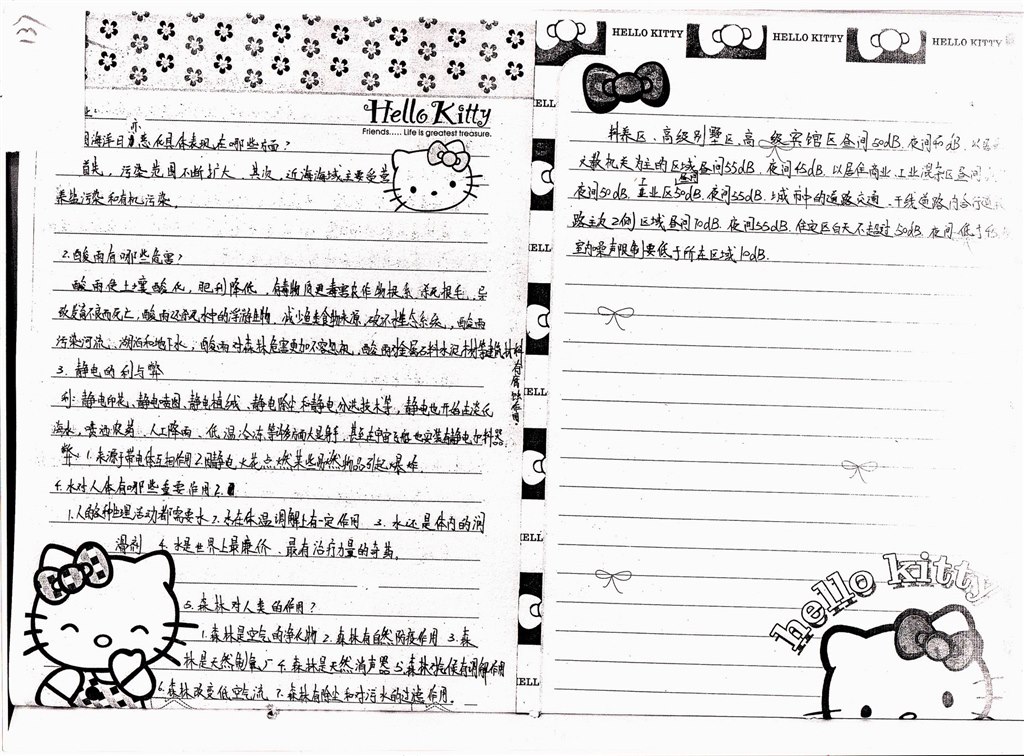 Hello Kitty
Friends..... Life is greatest treasure.
海洋日恶化具体表现在哪些方面?
首先,污染范围不断扩大 其次,近海海域主要受营
养盐污染和有机污染.
2.酸雨有哪些危害?
酸雨使土壤酸化,肥力降低,有毒物质更毒害农作物根系 杀死根毛,导
致发育不良而死亡,酸雨还杀死水中的浮游生物,减少鱼类食物来源,破坏水生态系统,酸雨
污染河流、湖泊和地下水,酸雨对森林危害更加不容忽视,酸雨对金属石料水泥木材等建筑材料
有腐蚀作用.
3.静电的利与弊
利:静电印花、静电喷图、静电植绒、静电除尘和静电分选技术等,静电也开始在淡化
海水,喷洒农药、人工降雨、低温冷冻等方面大显身手,甚至在宇宙飞船也安装有静电加料器
弊:1.来源于带电体互相作用2.静电火花点燃某些易燃物品引起爆炸.
4.水对人体有哪些重要作用?
1.人的各种生理活动都需要水 2.水在体温调解上有一定作用 3.水还是体内的润
滑剂 4.水是世界上最廉价、最有治疗力量的奇药.
5.森林对人类的作用?
1.森林是空气的净化物 2.森林有自然防疫作用 3.森
林是天然制氧厂 4.森林是天然消声器 5.森林对气候有调解作用
6.森林改变低空气流 7.森林有除尘和对污水的过滤作用。
HELLO KITTY HELLO KITTY HELLO KITTY
ELL
料养区、高级别墅区,高级宾馆区昼间50dB.夜间40dB,以居
文教机关为主的区域昼间55dB.夜间45dB.以居住商业.工业混杂区昼间
夜间50dB.工业区 夜间55dB.城市中的道路交通 干线道路内合行道
路主次2侧区域昼间70dB.夜间55dB.住宅区白天不超过50dB.夜间低于
室内噪声限制要低于所在区域10dB.
ELL
ELL
ELL
ELL
ELL
ELL
hello kitty